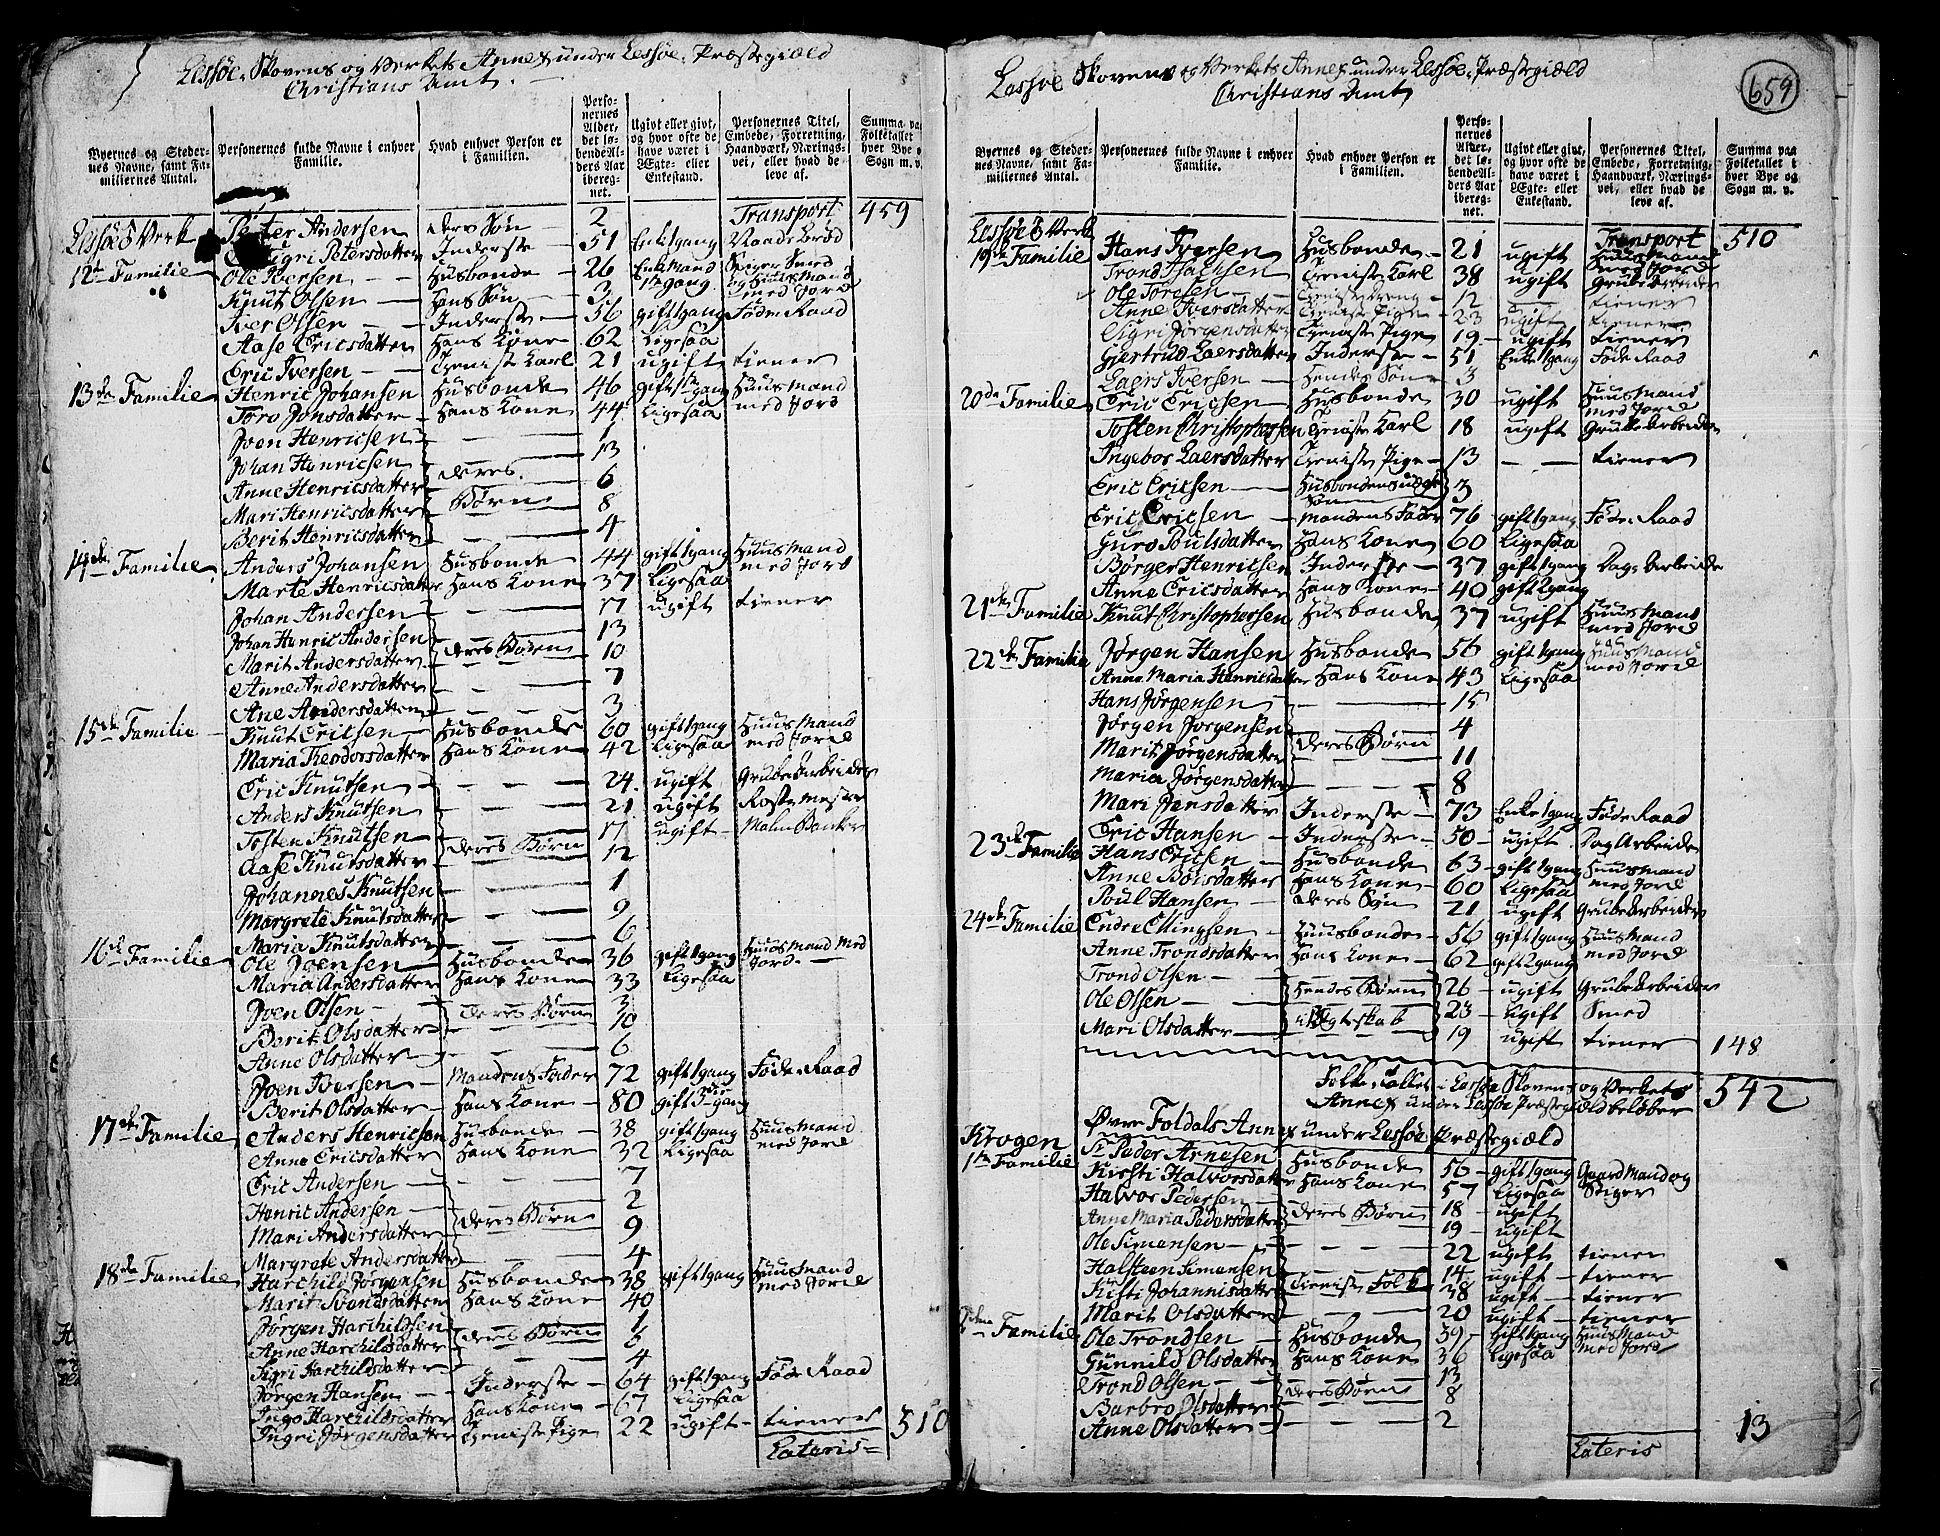 Lessøe Skovens og Verkets Annex under Lessøe Præstegiæld
Christians Amt.
Byernes og Stedernes Navne, samt Familiernes Antal.
Personernes fulde Navne i enhver Familie.
Hvad enhver Person er i Familien.
Personernes Alder, det løbende Alders Aar iberegnet.
Ugivt eller givt, og hvor ofte de have været i Ægte- eller Enkestand.
Personernes Titel, Embede, Forretning, Haandværk, Næringsvei, eller hvad de leve af.
Summa paa Folketallet i hver Bye og Sogn m. v.
Transport 459
Lessøe Verk Peter Andersen deres Søn 2
Sigri Petersdatter Inderste 51 Enke 1 gang
12te Familie Ole Iversen Husbonde 26 Enke Mand 1te gang Smed og Huus Mand med Jord
Knut Olsen Hans Søn 3
Iver Olsen Inderste 56 gift 1 gang Føde Raad
Aase Ericsdatter Hans Kone 62 Ligesaa
Eric Iversen Tieniste Karl 21 ugift tiener
13de Familie Henric Johansen Husbonde 46 gift 1 gang Huus Mand med Jord
Toro Jonsdatter Hans Kone 44 Ligesaa
Joen Henricsen 1
Johan Henricsen 13
Anne Henricsdatter deres 6
Mari Henricsdatter Børn 8
Berit Henricsdatter 4
14de Familie Anders Johansen Husbonde 44 gift 1 gang Huus Mand med Jord
Marte Henricsdatter Hans Kone 37 Ligesaa
Johan Andersen 17 ugift tiener
Johan Henric Andersen 13
Marit Andersdatter deres Børn 10
Anne Andersdatter 7
Ane Andersdatter 3
15de Familie Knut Ericsen Husbonde 60 gift 1 gang Huus Mand med Jord
Maria Theodorsdatter Hans Kone 42 Ligesaa
Eric Knutsen 24 ugift Grube Arbeider
Anders Knutsen 21 ugift Røste Mester
Tosten Knutsen 17 ugift Malm Banker
Aase Knutsdatter deres Børn 12
Johannes Knutsen 1
Margrete Knutsdatter 9
Maria Knutsdatter 6
16de Familie Ole Joensen Husbonde 36 gift 1 gang Huus Mand Med Jord
Maria Andersdatter Hans Kone 33 Ligesaa
Joen Olsen 3
Berit Olsdatter deres Børn 10
Anne Olsdatter 6
Joen Iversen Mandens Fader 72 gift 1 gang Føde Raad
Berit Olsdatter Hans Kone 80 gift 3die gang
17de Familie Anders Henricsen Husbonde 38 gift 1 gang Huus Mand med Jord
Anne Ericsdatter Hans Kone 32 Ligesaa
Eric Andersen 7
Henric Andersen 2
Mari Andersdatter deres Børn 9
Margrete Andersdatter 4
18de Familie Harchild Jørgensen Husbonde 38 gift 1 gang Huus Mand med Jord
Marit Svendsdatter Hans Kone 40
Jørgen Harchildsen 1
Anne Harchilsdatter deres Børn 6
Sigri Harchildsdatter 4
Jørgen Hansen Inderste 64 gift 1 gang Føde Raad
Ingo Harchildsdatter Hans Kone 67 Ligesaa
Ingri Jørgensdatter Tieniste Pige 22 ugift tiener 510
Lateris
659
Lessøe Skovens og Verkets Annex under Lessøe Præstegiæld
Christians Amt
Byernes og Stedernes Navne, samt Familiernes Antal.
Personernes fulde Navne i enhver Familie.
Hvad enhver Person er i Familien.
Personernes Alder, det løbende Alders Aar iberegnet.
Ugivt eller givt, og hvor ofte de have været i Ægte- eller Enkestand.
Personernes Titel, Embede, Forretning, Haandværk, Næringsvei, eller hvad de leve af.
Summa paa Folketallet i hver Bye og Sogn m. v.
Lessøe Verk Transport 510
19de Familie Hans Iversen Husbonde 21 ugift Huus Mand med Jord
Trond Isachsen Tieniste Karl 38 ugift Grube Arbeider
Ole Torgsen Tieniste Dreng 12 tiener
Anne Iversdatter Tieniste Pige 23 ugift tiener
Sigri Jørgensdatter Tieniste Pige 19 ugift tiener
Giertrud Laersdatter Inderste 51 Enke 1 gang Føde Raad
Laers Iversen Hendes Søn 3
20de Familie Eric Ericsen Husbonde 30 ugift Huus Mand med Jord
Tosten Christophersen Tieniste Karl 18 ugift Grube Arbeider
Ingebor Laersdatter Tieniste Pige 13 tiener
Eric Ericsen Husbondens Søn 3
Eric Ericsen Mandens Fader 76 gift 1 gang Føde Raad
Guro Poulsdatter Hans Kone 60 Ligesaa
Børger Henricsen Inderste 37 gift 1 gang Dag Arbeider
Anne Ericsdatter Hans Kone 40 gift 2 gang
21de Familie Knut Christophersen Husbonde 37 ugift Huus Mand med Jord
22de Familie Jørgen Hansen Husbonde 56 gift 1 gang Huus Mand med Jord
Anne Maria Henricsdatter Hans Kone 43 Ligesaa
Hans Jørgensen 15
Jørgen Jørgensen 4
Marit Jørgensdatter deres Børn 11
Maria Jørgensdatter 8
Mari Jonsdatter Inderste 73 Enke 1 gang Føde Raad
Eric Hansen Inderste 50 ugift Dag Arbeider
23de Familie Hans Ericsen Husbonde 63 gift 1 gang Huus Mand med Jord
Anne Boisdatter Hans Kone 60 Ligesaa
Poul Hansen deres Søn 21 ugift Grube Arbeider
24de Familie Endre Ellingsen Huusbonde 56 gift 1 gang Huus Mand med Jord
Anne Trondsdatter Hans Kone 62 gift 2 gang
Trond Olsen Hendes Børn 26 ugift Grube Arbeider
Ole Olsen i Ægteskab 23 Ugift Smed
Mari Olsdatter 19 ugift tiener 148
Folke Tallet i Lessøe Skovens og Verkets Annex under Lessøe Præstegiæld beløber 542
Øvre Foldals Annex under Lessøe Præstegiæld
Krogen
1te Familie Sr Peder Arnesen Husbonde 56 gift 1 gang Gaard Mand og Stiger
Kirsti Halvorsdatter Hans Kone 57 Ligesaa
Halvor Pedersen 18 ugift
Anne Maria Pedersdatter deres Børn 19 ugift
Ole Simensen 22 ugift tiener
Halsteen Simensen 14 ugift tiener
Kisti Johannisdatter Tieniste Folk 38 ugift tiener
Marit Olsdatter 20 ugift tiener
2den Familie Ole Trondsen Husbonde 39 Gift 1 gang Huus Mand med Jord
Gunnild Olsdatter Hans Kone 36 Ligesaa
Trond Olsen 13
Barbro Olsdatter deres Børn 8
Anne Olsdatter 2 13
Lateris